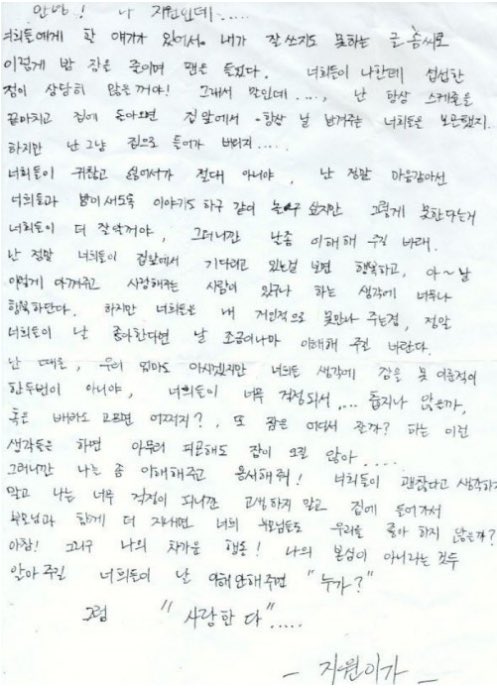 안녕! 나 지원인데.....
너희들에게 할 얘기가 있어서, 내가 잘 쓰지도 못하는 글 솜씨로
이렇게 밤 잠을 줄이며 펜을 들었다. 너희들이 나한테 섭섭한
점이 상당히 많은꺼야! 그래서 말인데...., 난 항상 스케줄을
끝마치고 집에 돌아오면 집앞에서 항상 날 반겨주는 너희들을 보곤했지..
하지만 난 그냥 집으로 들어가 버리지....
너희들이 귀찮고 싫어서가 절대 아니야, 난 정말 마음같아선
너희들과 밤이새도록 이야기도 하구 같이 놀구 싶지만 그렇게 못한다는거
너희들이 더 잘알꺼야, 그러니깐 난좀 이해해 주길 바래.
난 정말 너희들이 집앞에서 기다리고 있는걸 보면 행복하고, 아~ 날
이렇게 아껴주고 사랑해주는 사람이 있구나 하는 생각에 너무나
행복하단다. 하지만 너희들은 내 개인적으로 못만나 주는점, 정말
너희들이 날 좋아한다면 날 조금이나마 이해해 주길 바란다.
난 때론, 우리 엄마도 아시겠지만 너희들 생각에 잠을 못 이룬적이
한두번이 아니야, 너희들이 너무 걱정되서,... 춥지나 않은까,
혹은 배라도 고프면 어쩌지?, 또 잠은 어디서 잘까? 하는 이런
생각들을 하면 아무리 피곤해도 잠이 오질 않아....
그러니깐 나를 좀 이해해주고 용서해줘! 너희들이 괜찮다고 생각하지
말고 나는 너무 걱정이 되니깐 고생하지 말고 집에 들어가서
부모님과 함께 더 지내면 너희 부모님들도 우리를 좋아 하지 않은까?
아참! 그리구 나의 차가운 행동! 나의 본심이 아니라는 것두
알아 주길 너희들이 날 이해안해주면 "누가?"
그럼 "사랑한다".....
- 지원이가 -